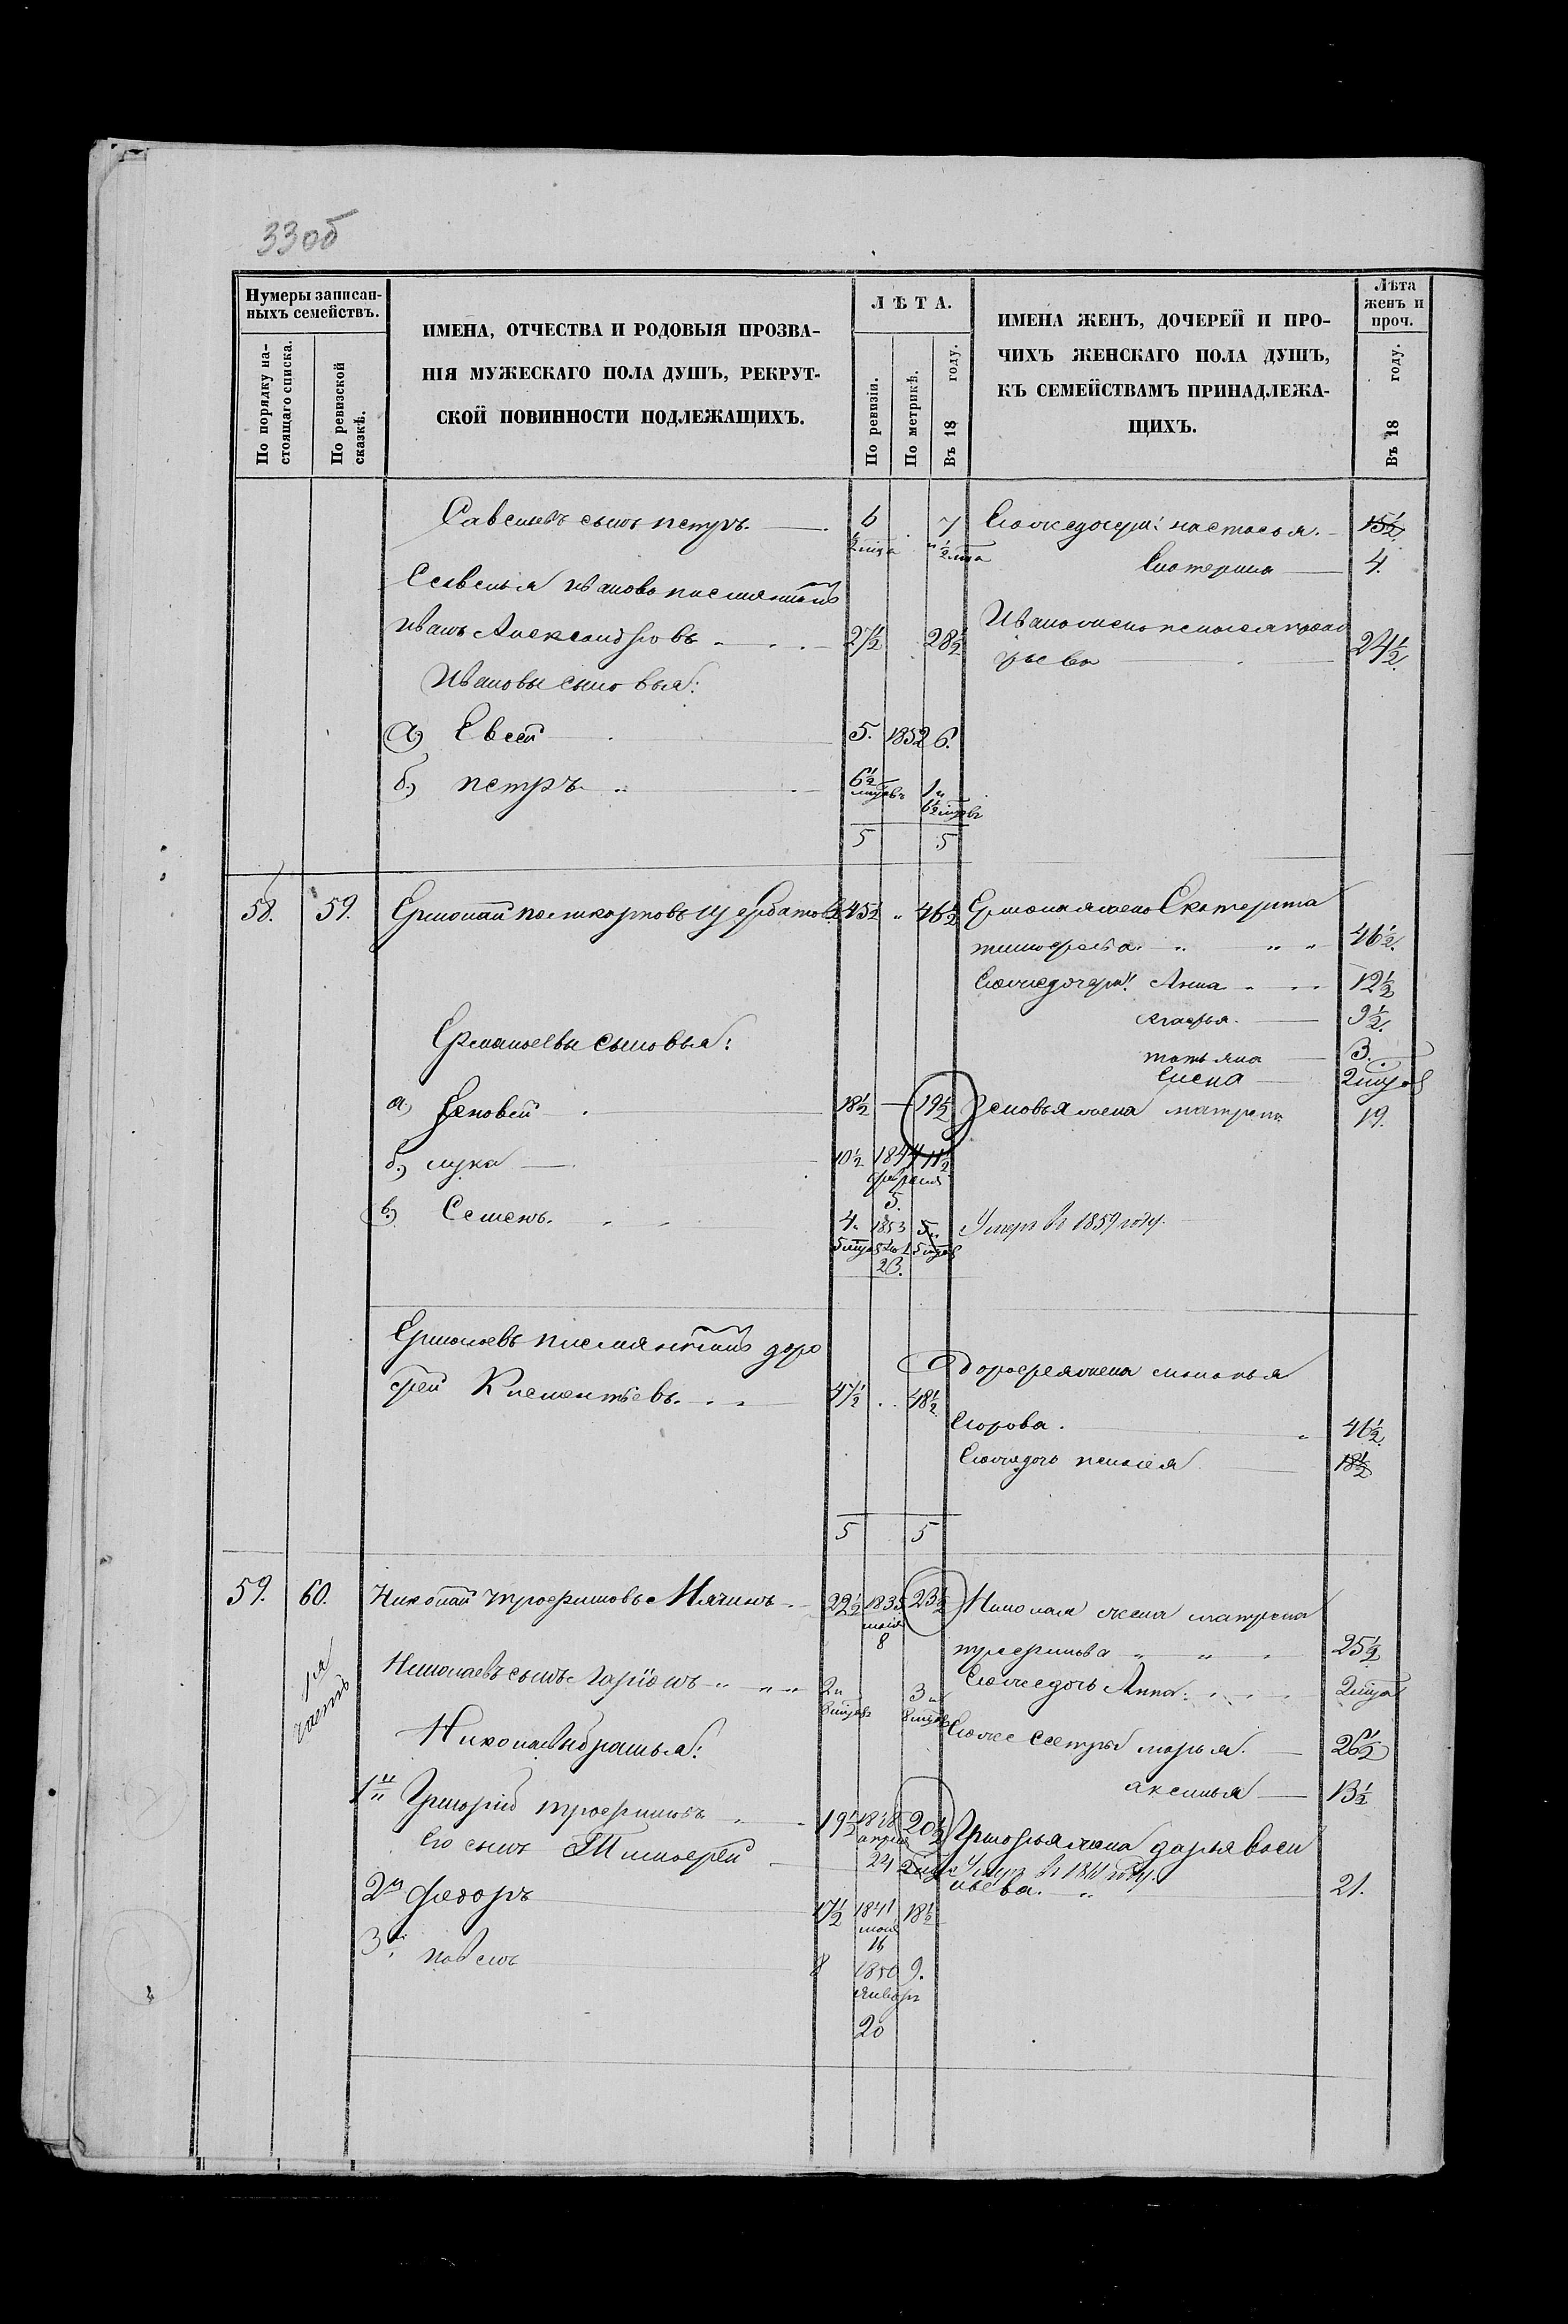 33об
Нумеры записан-
ныхъ семействъ.
По порядку на-
стоящаго списка.
По ревизской
сказкѣ.
ИМЕНА, ОТЧЕСТВА И РОДОВЫЯ ПРОЗВА-
НІЯ МУЖЕСКАГО ПОЛА ДУШЪ, РЕКРУТ-
СКОЙ ПОВИННОСТИ ПОДЛЕЖАЩИХЪ.
ЛѢТА.
По ревизіи.
По метрикѣ.
Въ 18 году.
ИМЕНА ЖЕНЪ, ДОЧЕРЕЙ И ПРО-
ЧИХЪ ЖЕНСКАГО ПОЛА ДУШЪ,
КЪ СЕМЕЙСТВАМЪ ПРИНАДЛЕЖА-
ЩИХЪ.
Лѣта
женъ и
проч.
Въ 18 году.
Савельевъ сынъ петръ. 6 7 Егожедочери: настасья. 15½
Катерина 4.
Савелья иванова племянникъ
иванъ Александровъ 27½ 28½ Ивана жена пелагея
24½
Ивановы сыновья:
а) Евсей 5. 1852 6.
б) петръ 6½ 1
5 5
58. 59. Ермолай поликарповъ щербатовъ 45½ 46½ Ермолая жена Екатерина
тимофеева 46½
Егожедочери: Анна 12½
марья. 9½
татьяна 3.
Елена
Ермолаевы сыновья:
а) Зеновей 18½ 19½ Зеновья жена матрена 19.
б) лука 10½ 1847 11½
февраля
5.
в) Семенъ. 4 1853 5 Умеръ въ 1859 году.
23.
Ермолаевъ племянникъ доро
фей Клементьевъ. 47½ 48½ Дорофея жена меланья
Егорова. 46½
Егожедочь пелагея 18½
5 5
59. 60. Николай трофимовъ Мячинъ 22½ 1835 23½ Николая жена матрена
8
трофимова 25½
1я часть
Николаевъ сынъ Ларіонъ 2 3 Егожедочь Анна:
Николаевы братья: Егоже сестры марья. 26½
аксинья 13½
1й Григорій трофимовъ 19½ 1838 20½ Григорья жена дарья васи
апреля
24
Его сынъ Тимофей Умеръ въ
льева. 21.
2й федоръ 17½ 1841 18½
мая
16
3й павелъ 8 1850 9.
Январь
20